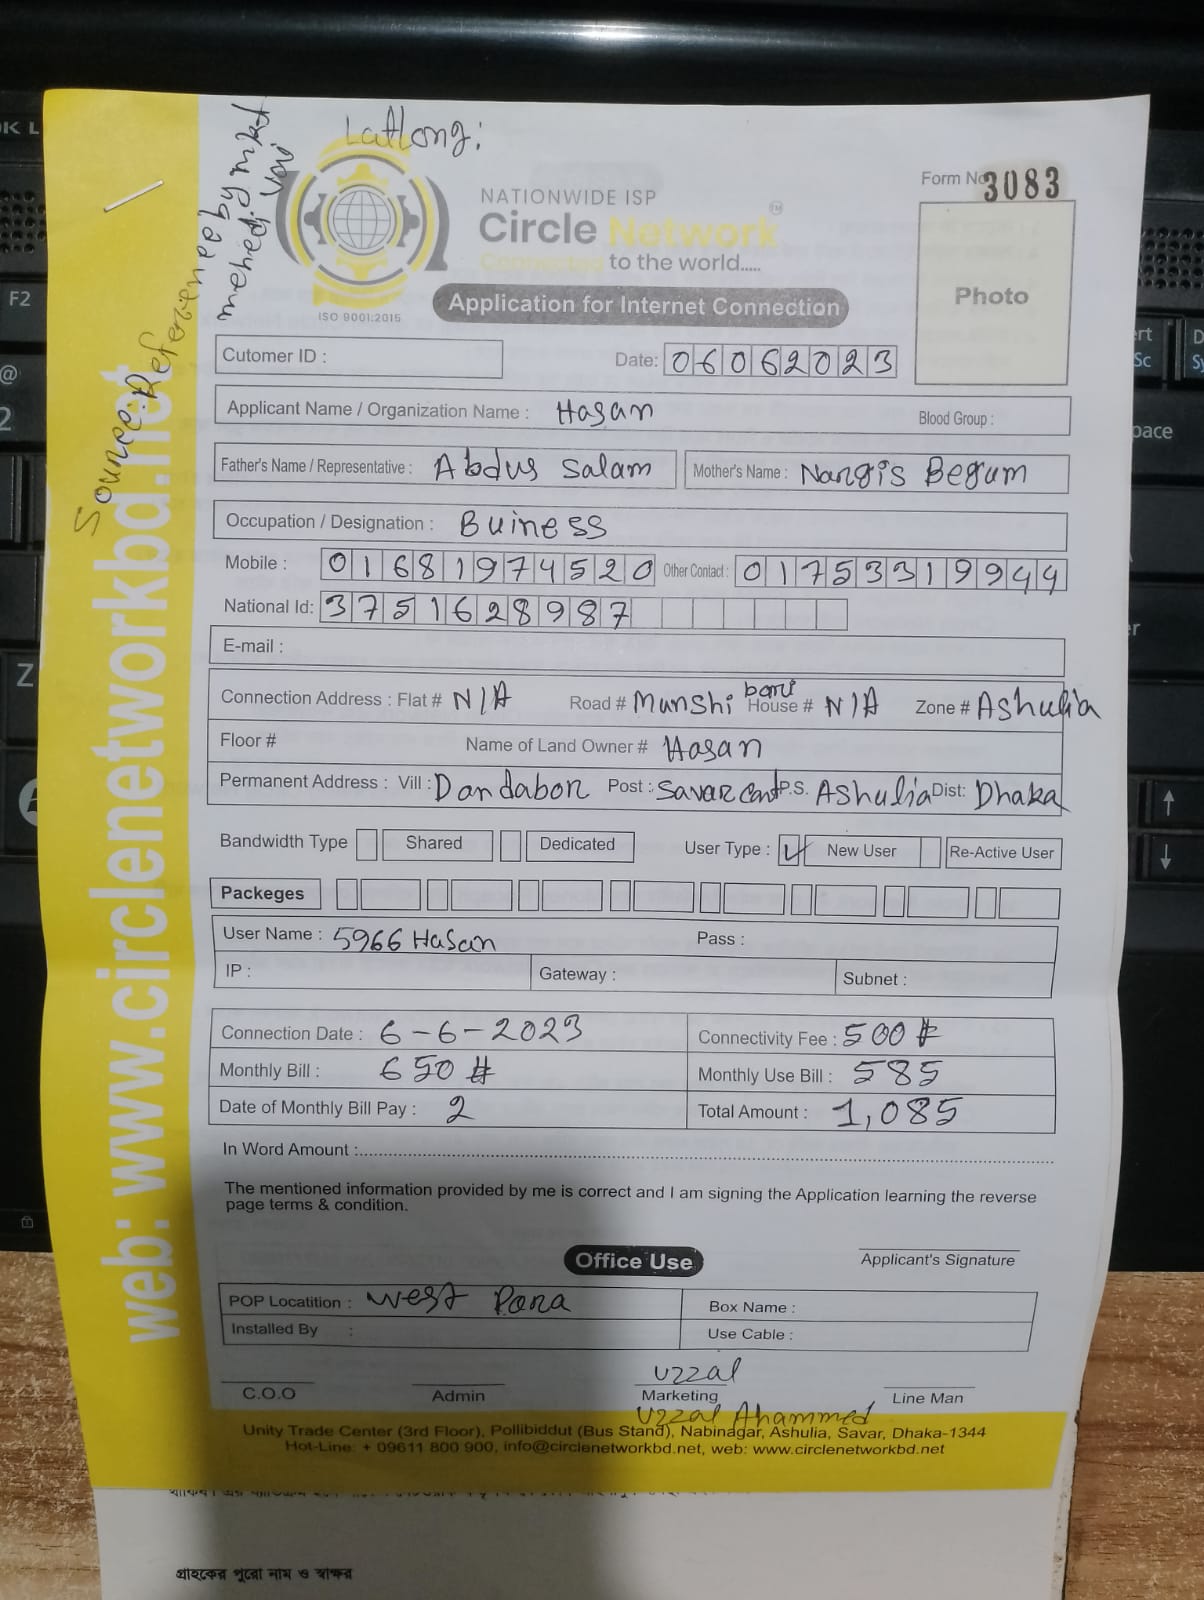 Latlong:
Sounce: Reference by mkt
mehedi vai
NATIONWIDE ISP
Circle Network
TM
Connected to the world.....
ISO 9001:2015
Application for Internet Connection
Form No 3083
Photo
Cutomer ID :
Date: 06062023
Applicant Name / Organization Name : Hasan Blood Group :
Father's Name / Representative : Abdus Salam Mother's Name : Nangis Begum
Occupation / Designation : Buiness
Mobile : 01681974520 Other Contact : 01753319944
National Id: 3751628987
E-mail :
Connection Address : Flat # N/A Road # Munshi bari House # N/A Zone # Ashulia
Floor # Name of Land Owner # Hasan
Permanent Address : Vill : Dandabor Post : Savar cant P.S. Ashulia Dist: Dhaka
Bandwidth Type Shared Dedicated User Type : ✓ New User Re-Active User
Packeges
User Name : 5966 Hasan Pass :
IP : Gateway : Subnet :
Connection Date : 6-6-2023 Connectivity Fee : 500 #
Monthly Bill : 650 # Monthly Use Bill : 585
Date of Monthly Bill Pay : 2 Total Amount : 1,085
In Word Amount :
The mentioned information provided by me is correct and I am signing the Application learning the reverse
page terms & condition.
Applicant's Signature
Office Use
POP Locatition : West Para Box Name :
Installed By : Use Cable :
Uzzal
C.O.O Admin Marketing Line Man
Uzzal Ahammed
Unity Trade Center (3rd Floor), Pollibiddut (Bus Stand), Nabinagar, Ashulia, Savar, Dhaka-1344
Hot-Line: + 09611 800 900, info@circlenetworkbd.net, web: www.circlenetworkbd.net
web: www.circlenetworkbd.net
গ্রাহকের পুরো নাম ও স্বাক্ষর
F2
Z